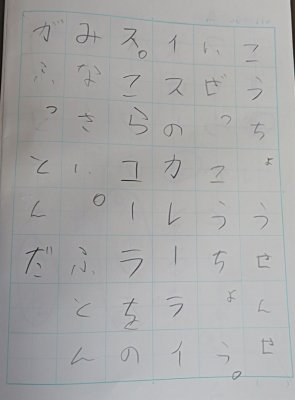 こうちょうせんせ
いぜっこうちょう。
イスのカレーライ
ス。こらコーラをの
みなさい。ふとん
がふっとんだ